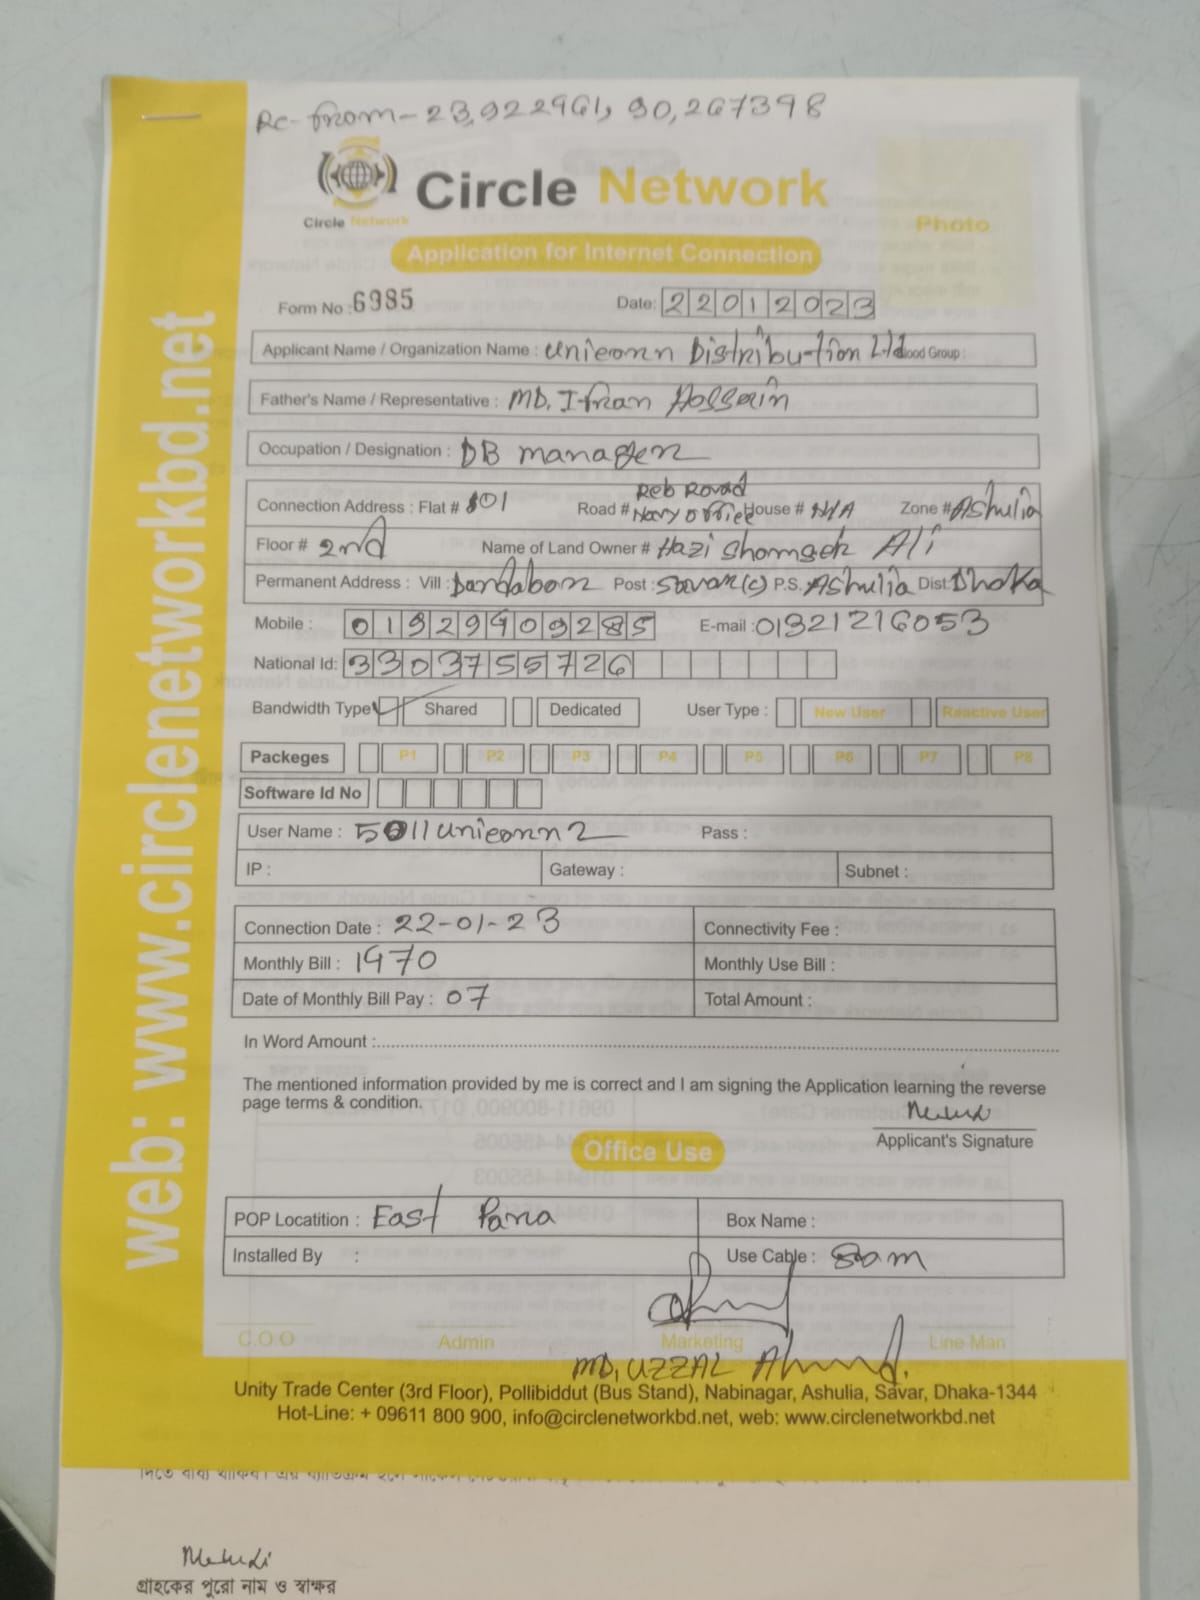 Re-from-23,922961, 90,267398
Circle Network
Circle Network
Photo
Application for Internet Connection
Form No : 6985
Date: 22012023
Applicant Name / Organization Name : Unicorn Distribution Ltd Blood Group :
Father's Name / Representative : MD. Ifran Hossain
Occupation / Designation : DB manager
Connection Address : Flat # 801 Road # Reb Rovad Navy office House # N/A Zone # Ashulia
Floor # 2nd Name of Land Owner # Hazi Shomser Ali
Permanent Address : Vill : Dandabor Post : Savar(c) P.S. Ashulia Dist: Dhaka
Mobile : 01929909285 E-mail : 01321216053
National Id: 3303755726
Bandwidth Type Shared Dedicated User Type : New User Reactive User
Packeges P1 P2 P3 P4 P5 P6 P7 P8
Software Id No
User Name : 5011unicorn2 Pass :
IP : Gateway : Subnet :
Connection Date : 22-01-23 Connectivity Fee :
Monthly Bill : 1970 Monthly Use Bill :
Date of Monthly Bill Pay : 07 Total Amount :
In Word Amount :
The mentioned information provided by me is correct and I am signing the Application learning the reverse
page terms & condition.
Applicant's Signature
Office Use
POP Locatition : East Para Box Name :
Installed By : Use Cable : 80m
C.O.O Admin Marketing Line Man
MD, UZZAL Ahmed.
Unity Trade Center (3rd Floor), Pollibiddut (Bus Stand), Nabinagar, Ashulia, Savar, Dhaka-1344
Hot-Line: + 09611 800 900, info@circlenetworkbd.net, web: www.circlenetworkbd.net
web: www.circlenetworkbd.net
Mehedi
গ্রাহকের পুরো নাম ও স্বাক্ষর